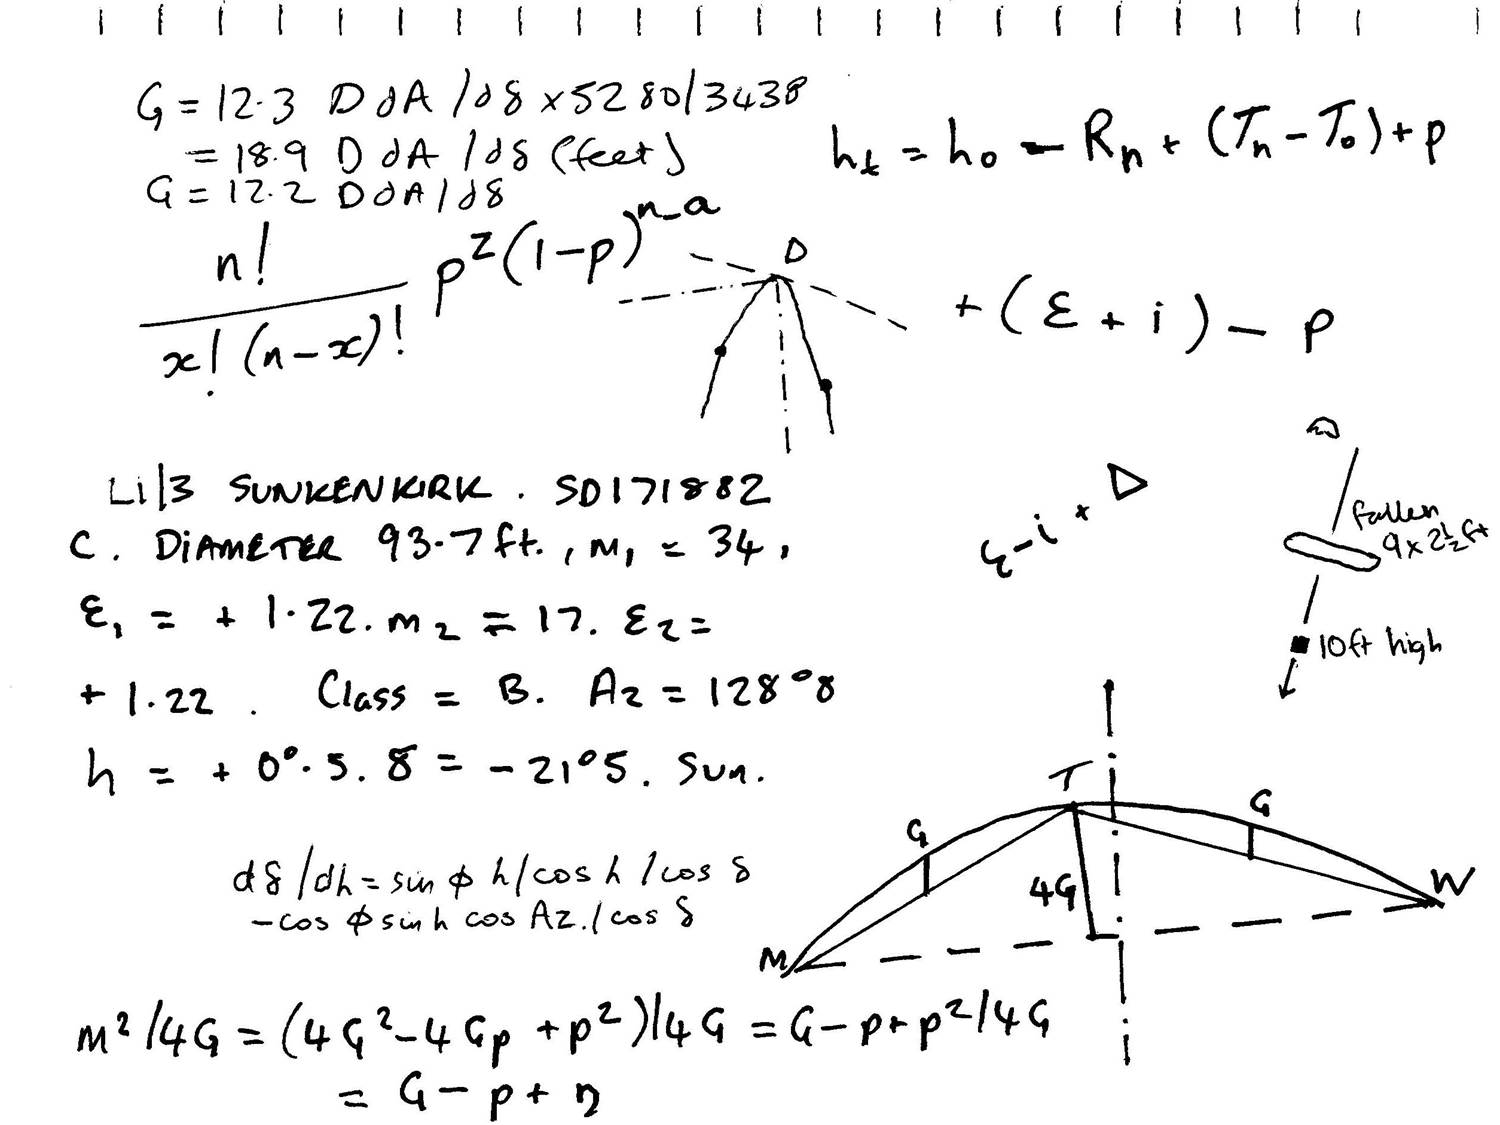 G = 12.3 D dA / dδ × 5280/3438
= 18.9 D dA / dδ (feet)
G = 12.2 D dA / dδ
hₜ = h₀ − Rₙ + (Tₙ − T₀) + p
n!
x! (n − x)!
p^z (1 − p)^n−a
D
+ (ε + i) − p
Li|3 SUNKENKIRK. SD171882
C. DIAMETER 93.7 ft., m₁ = 34,
ε₁ = + 1.22. m₂ = 17. ε₂ =
+ 1.22. Class = B. Az = 128°8
h = + 0°.5. δ = − 21°5. Sun.
fallen
9 × 2½ ft
10ft high
dδ/dh = sin φ h/cos h/cos δ
− cos φ sin h cos Az./cos δ
T
G
G
4G
M
W
m²/4G = (4G² − 4Gp + p²)/4G = G − p + p²/4G
= G − p + η